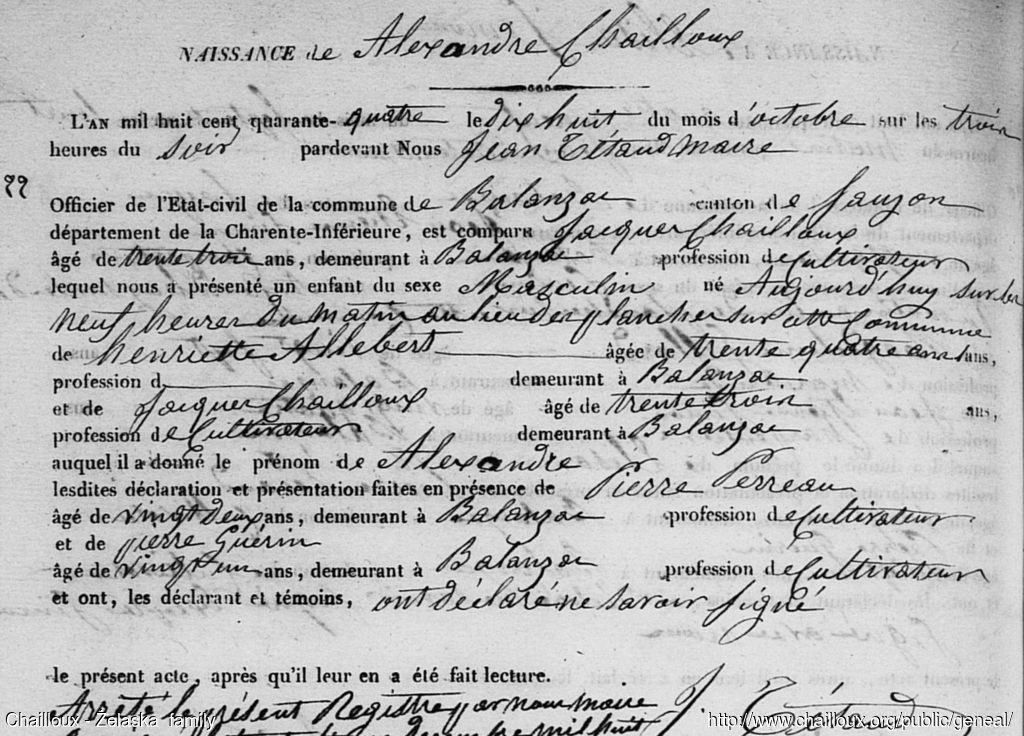 NAISSANCE de Alexandre Chailloux
L'AN mil huit cent quarante-quatre le dix huit du mois d'octobre sur les trois
heures du soir pardevant Nous Jean Tétaud maire
22
Officier de l'Etat-civil de la commune de Balanzac canton de Saujon
département de la Charente-Inférieure, est comparu Jacques Chailloux
âgé de trente trois ans, demeurant à Balanzac profession de Cultivateur
lequel nous a présenté un enfant du sexe Masculin né Aujourd'huy sur les
neuf heures du matin au lieu des planches sur cette Commune
de henriette Allebert âgée de trente quatre ans ans,
profession d demeurant à Balanzac
et de Jacques Chailloux âgé de trente trois ans,
profession de Cultivateur demeurant à Balanzac
auquel il a donné le prénom de Alexandre
lesdites déclaration et présentation faites en présence de Pierre Perreau
âgé de vingt deux ans, demeurant à Balanzac profession de Cultivateur
et de pierre Guérin
âgé de vingt un ans, demeurant à Balanzac profession de Cultivateur
et ont, les déclarant et témoins, ont déclaré ne savoir signé
le présent acte, après qu'il leur en a été fait lecture.
Arrêté le présent Registre par nous maire J. Tétaud
mil huit
Chailloux - Zelaska family http://www.chailloux.org/public/geneal/